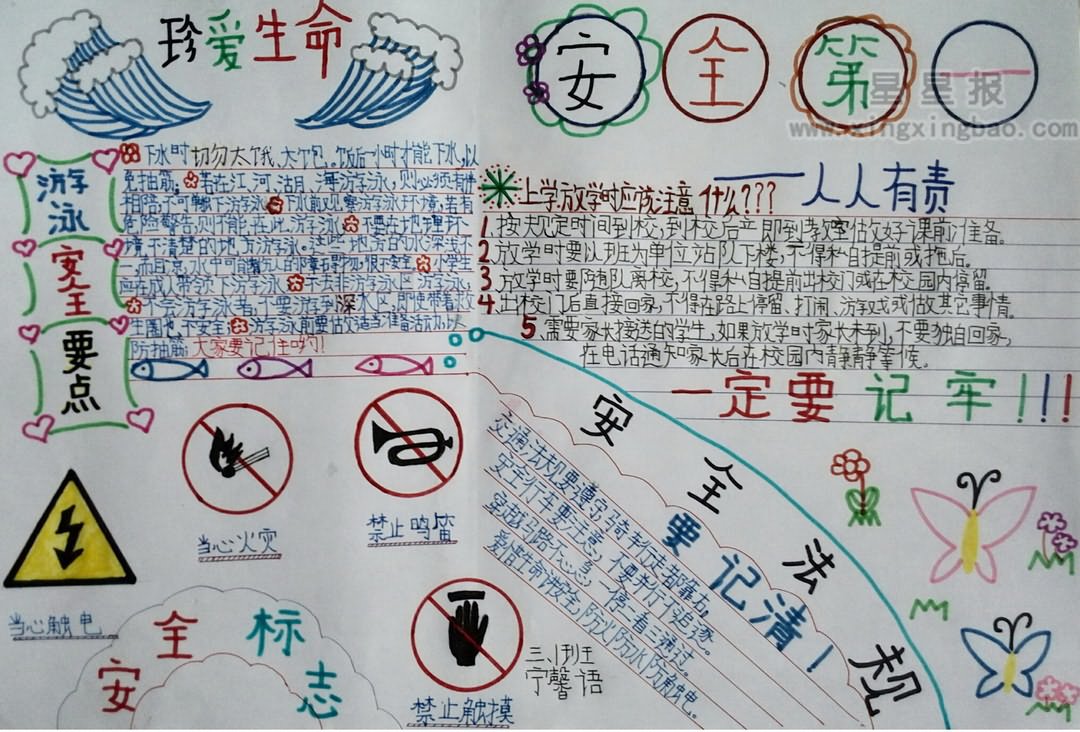 珍爱生命
安全第一
星星报
www.xingxingbao.com
——人人有责
游泳
安全
要点
下水时切勿太饿、太饱。饭后一小时才能下水,以
免抽筋。若在江、河、湖、海游泳,则必须有伴
相陪,不可单独下游泳。下水前观察游泳环境,若有
危险警告,则不能在此游泳。不要在地理环
境不清楚的地方游泳。这些地方的水深浅不
一,而且凉,水中可能有伤人的障碍物,很不安全。小学生
应在成人带领下游泳。不去非游泳区游泳,
不会游泳者,不要游到深水区,即使带着救
生圈也不安全。游泳前要做适当准备活动,以
防抽筋。大家要记住哟!
上学放学时应该注意什么???
1.按规定时间到校,到校后立即到教室做好课前准备。
2.放学时要以班为单位站队下楼,不得私自提前或拖后。
3.放学时要随队离校,不得私自提前出校门或在校园内停留。
4.出校门后直接回家,不得在路上停留、打闹、游戏或做其它事情。
5.需要家长接送的学生,如果放学时家长未到,不要独自回家,
在电话通知家长后在校园内静静等候。
一定要记牢!!!
当心火灾
禁止鸣笛
当心触电
禁止触摸
安全标志
安全法规
要记清!
交通法规要遵守,骑车行走都靠右。
安全行车要注意,不要并行不追逐。
穿越马路不心急,一停二看三通过。
爱惜生命讲安全,防火防水防触电。
三、1班
宁馨语